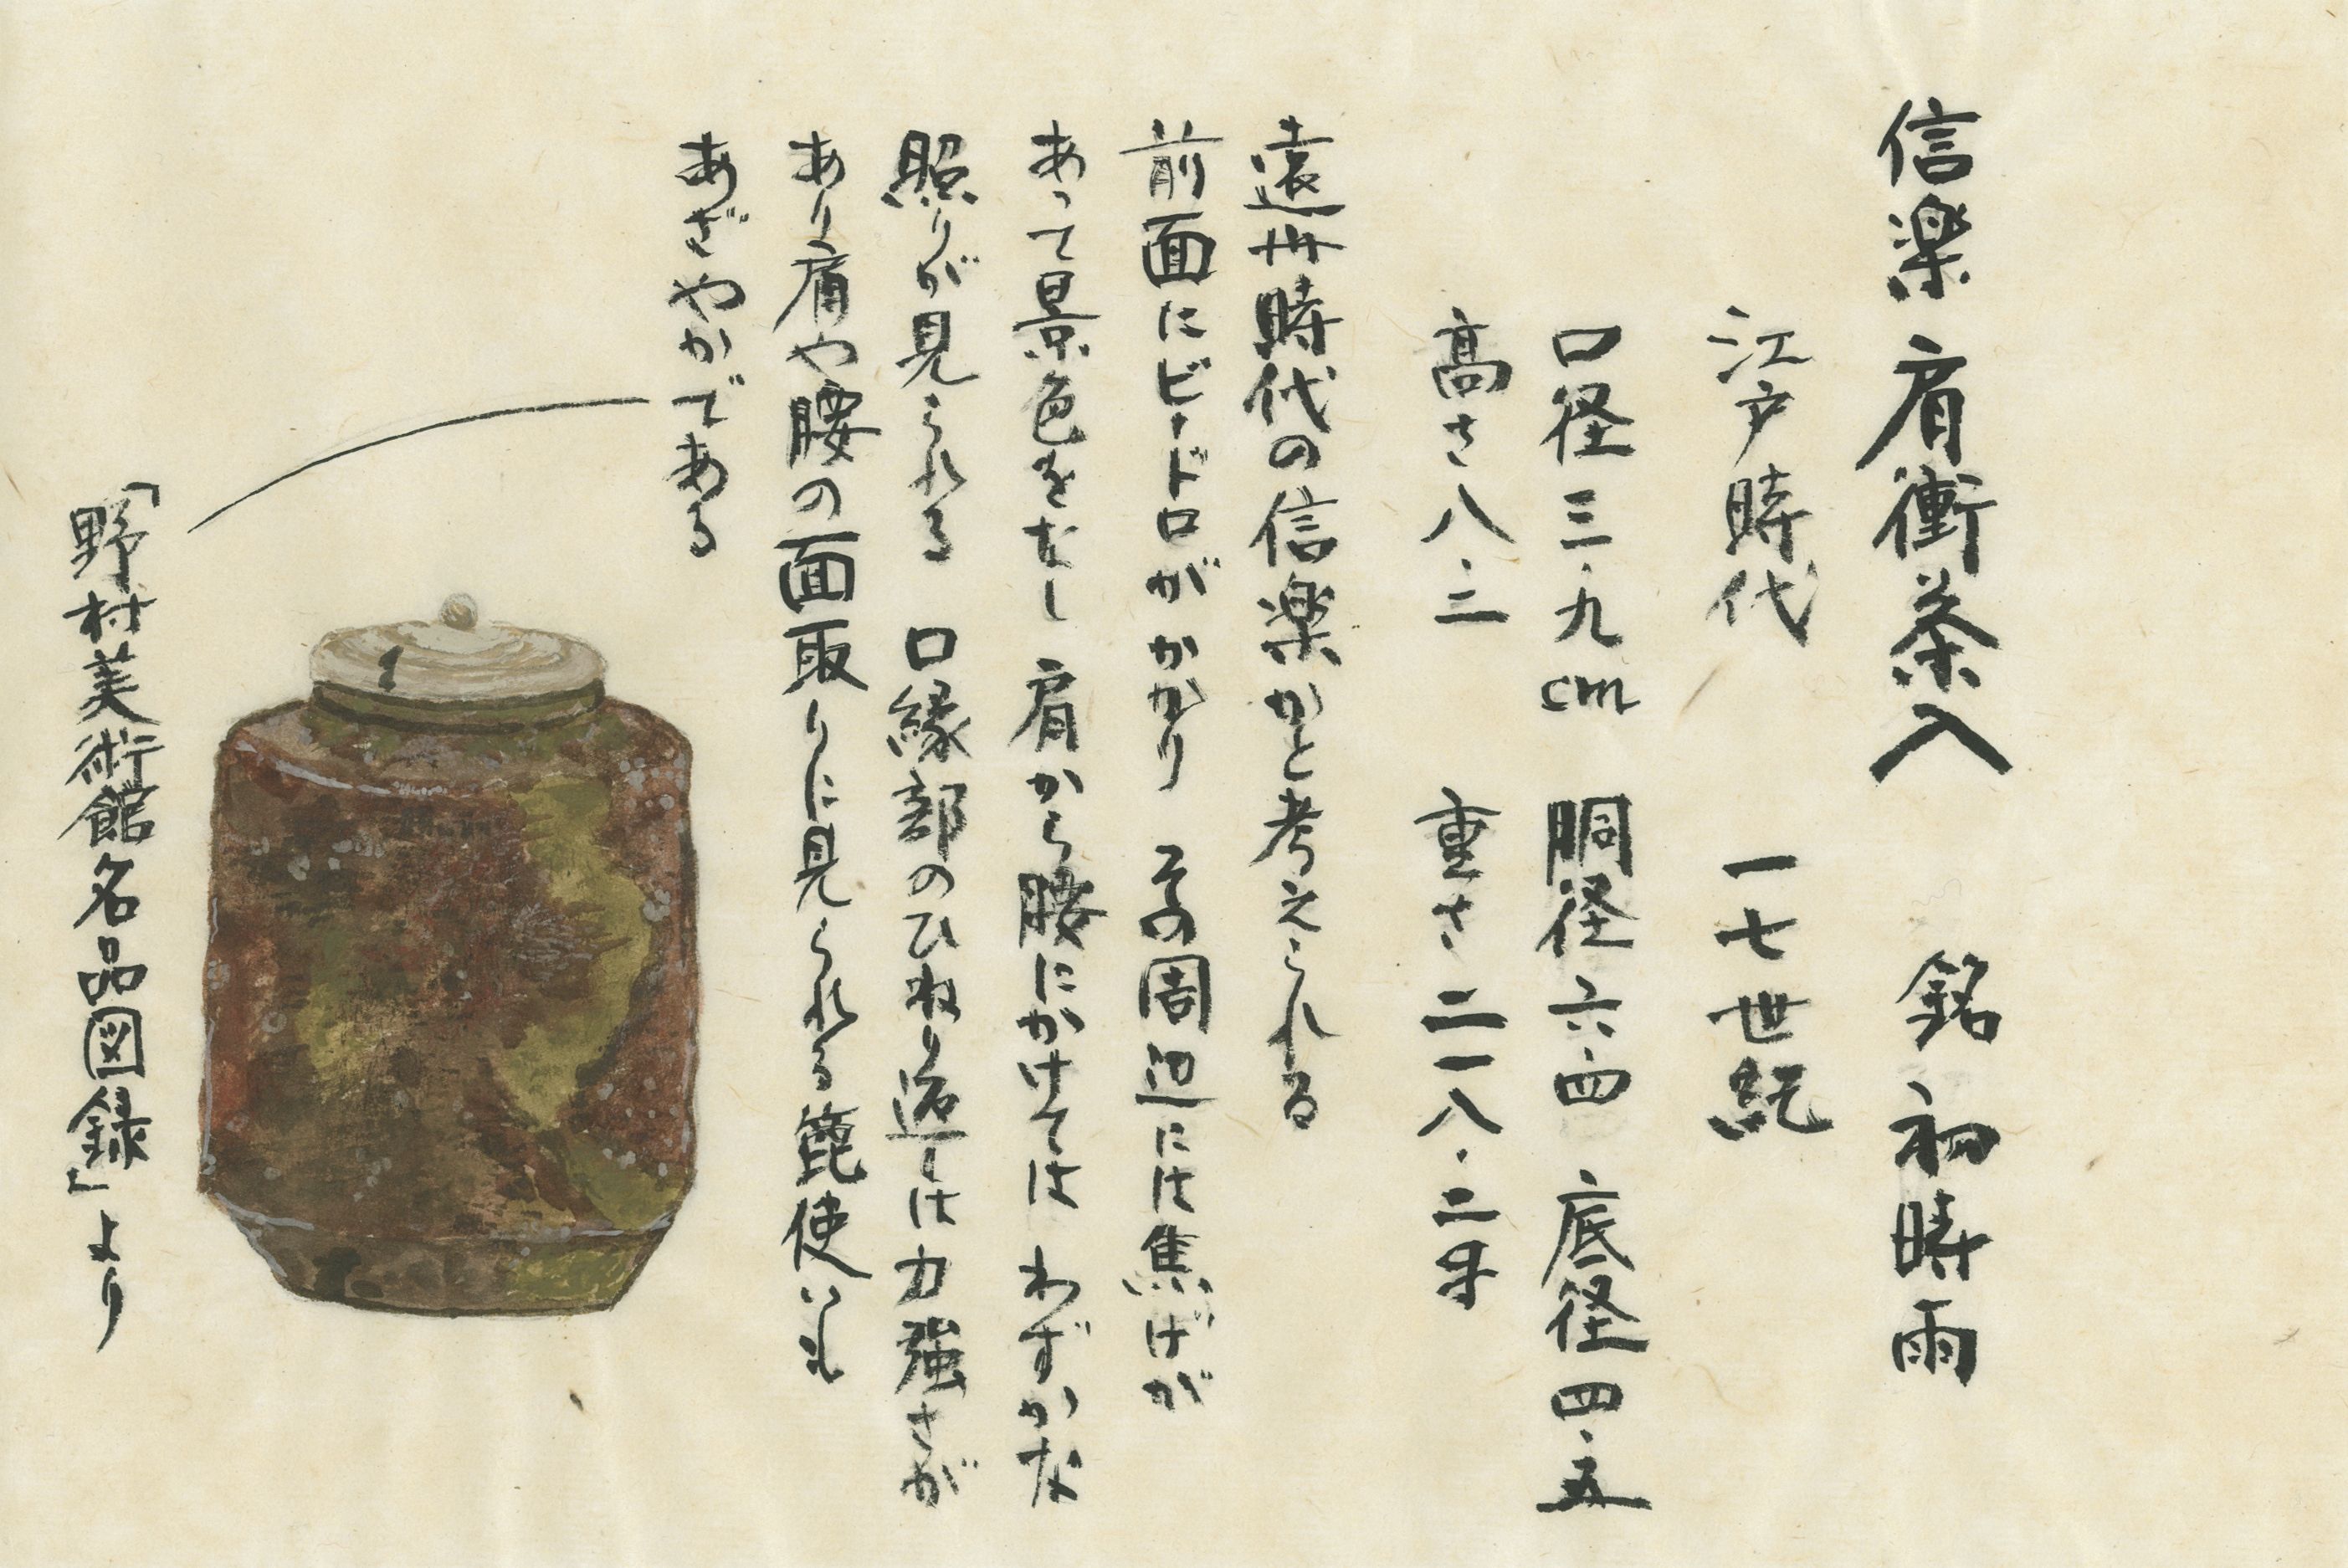 信楽 肩衝茶入 銘 初時雨
江戸時代 一七世紀
口径三・九cm 胴径六・四 底径四・五
高さ八・三 重さ二一八・二g
遠州時代の信楽かと考えられる
前面にビードロがかかり その周辺には焦げが
あって景色をなし 肩から腰にかけてはわずかな
照りが見られる 口縁部のひねり返しは力強さが
あり肩や腰の面取りに見られる箆使いも
あざやかである
「野村美術館名品図録」より